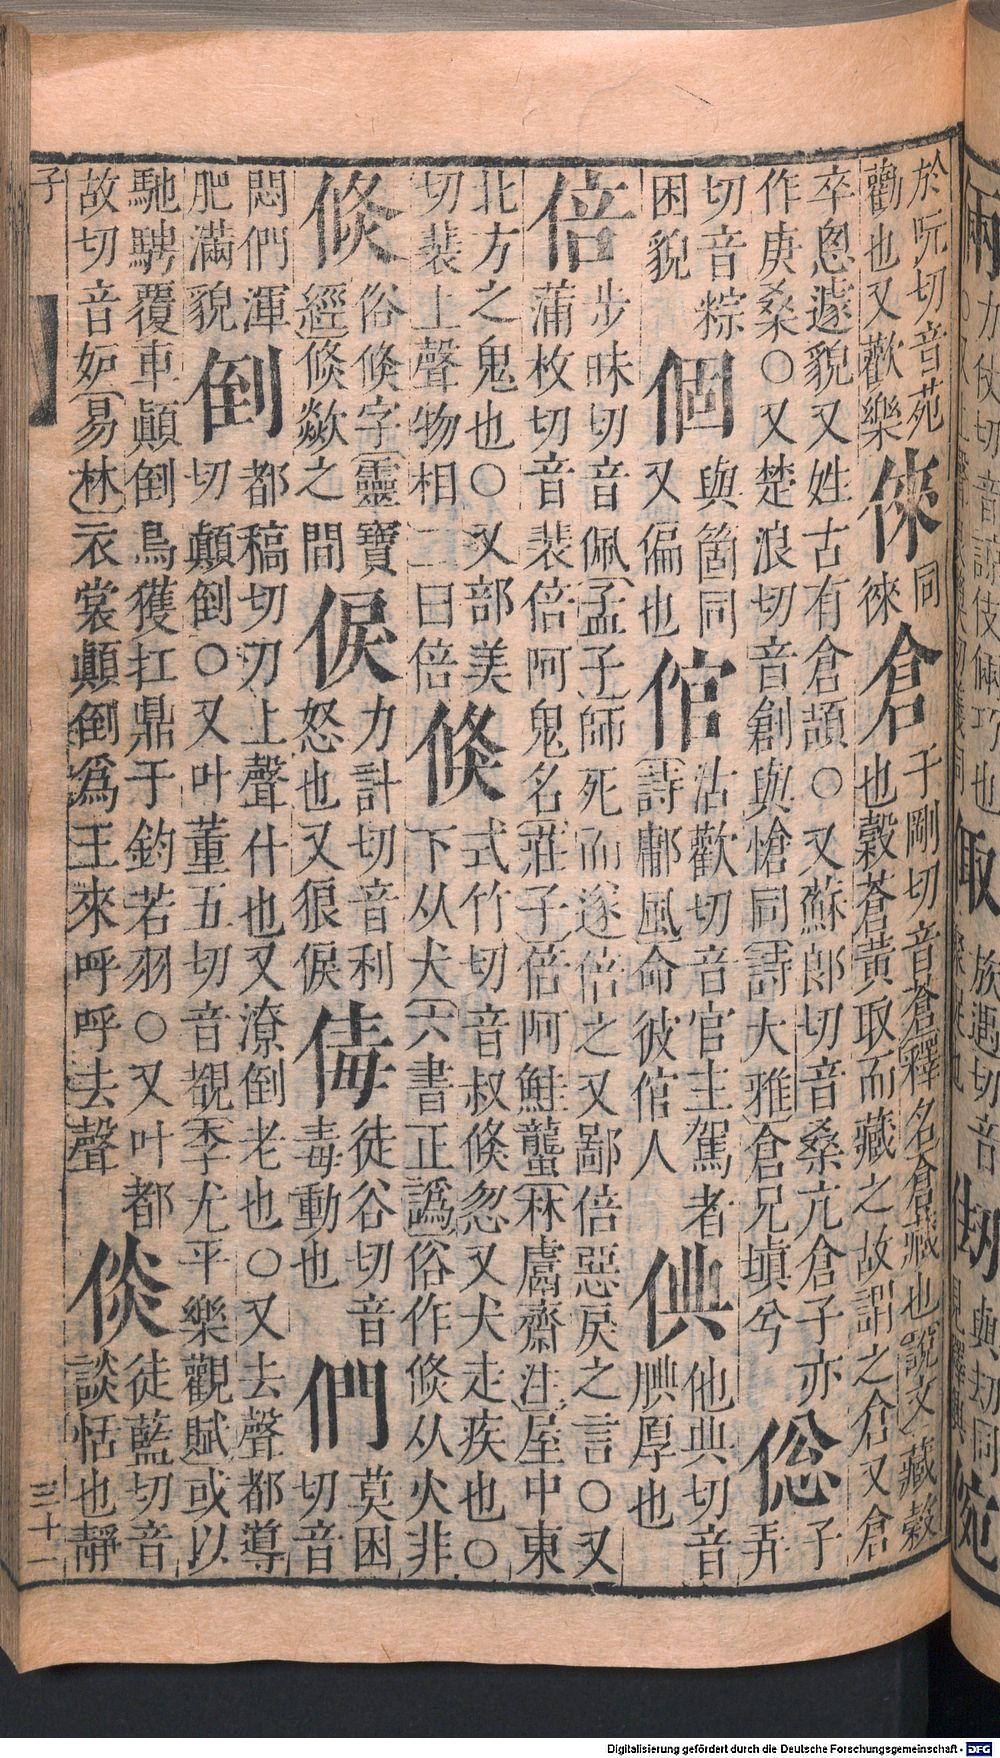 於阮切音苑
勸也又歡樂
倈
同
徠
倉
千剛切音蒼[釋名]倉藏也[說文]藏穀
也穀蒼黃取而藏之故謂之倉又倉
卒悤遽貌又姓古有倉頡〇又蘇郎切音桑亢倉子亦
作庚桑〇又楚浪切音創與愴同[詩大雅]倉兄塡兮
偬
子
弄
切音粽
困貌
個
與箇同
又偏也
倌
沽歡切音官主駕者
[詩鄘風]命彼倌人
倎
他典切音
腆厚也
倍
步昧切音佩[孟子]師死而遂倍之又鄙倍惡戾之言〇又
蒲枚切音裴倍阿鬼名[莊子]倍阿鮭蠪[林鬳齋注]屋中東
北方之鬼也〇又部美
切裴上聲物相二曰倍
倏
式竹切音叔倏忽又犬走疾也〇
下从犬[六書正譌]俗作倐从火非
倐
俗倏字[靈寶
經]倐歘之間
㑦
力計切音利
怒也又狠㑦
徒谷切音
毒動也
們
莫困
切音
悶們渾
肥滿貌
倒
都稿切刀上聲什也又潦倒老也〇又去聲都導
切顛倒〇又叶董五切音覩[李尤平樂觀賦]或以
馳騁覆車顚倒鳥獲扛鼎于鈞若羽〇又叶都
故切音妬[易林]衣裳顚倒爲王來呼呼去聲
倓
徒藍切音
談恬也靜
子
三十一
Digitalisierung gefördert durch die Deutsche Forschungsgemeinschaft - DFG